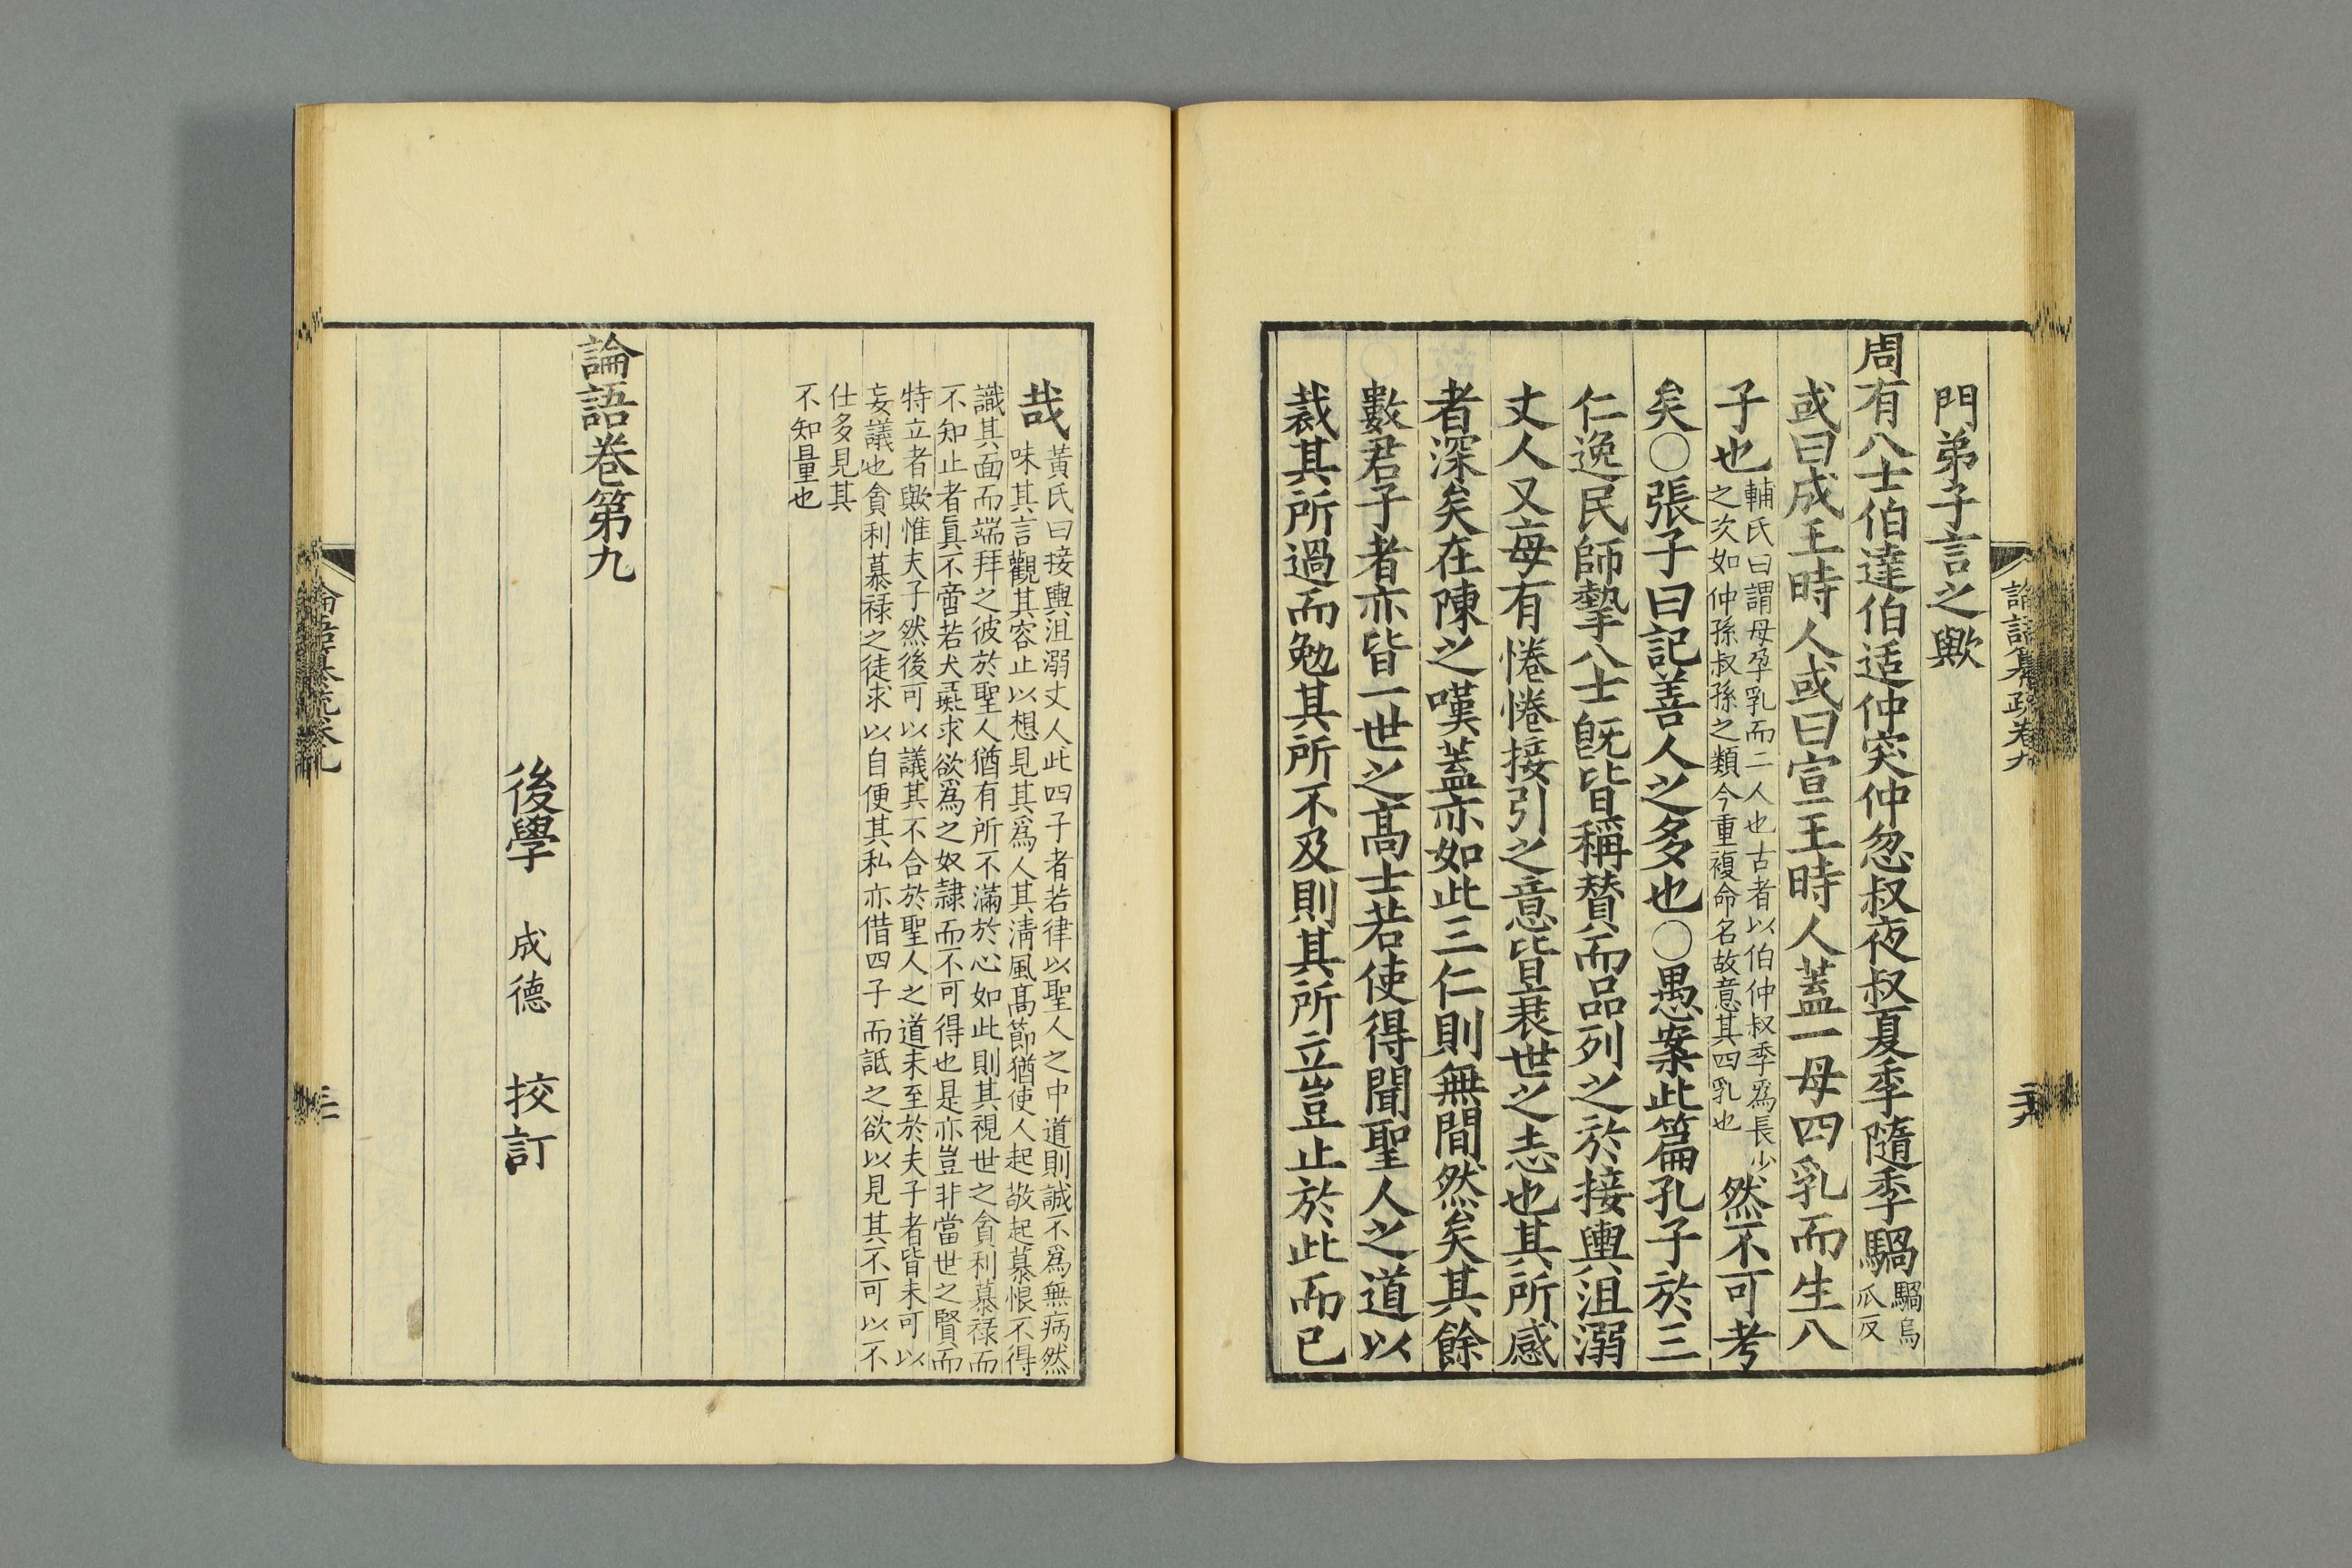 論語纂疏卷九
二十九
門弟子言之歟
周有八士伯達伯适仲突仲忽叔夜叔夏季隨季騧騧烏
瓜反
或曰成王時人或曰宣王時人蓋一母四乳而生八
子也輔氏曰謂母孕乳而二人也古者以伯仲叔季爲長少
之次如仲孫叔孫之類今重複命名故意其四乳也然不可考
矣○張子曰記善人之多也○愚案此篇孔子於三
仁逸民師摯八士旣皆稱賛而品列之於接輿沮溺
丈人又每有惓惓接引之意皆衰世之志也其所感
者深矣在陳之嘆蓋亦如此三仁則無間然矣其餘
數君子者亦皆一世之髙士若使得聞聖人之道以
裁其所過而勉其所不及則其所立豈止於此而已
哉黃氏曰接輿沮溺丈人此四子者若律以聖人之中道則誠不爲無病然
味其言觀其容止以想見其爲人其淸風髙節猶使人起敬起慕恨不得
識其面而端拜之彼於聖人猶有所不滿於心如此則其視世之貪利慕祿而
不知止者眞不啻若犬彘求欲爲之奴隷而不可得也是亦豈非當世之賢而
特立者歟惟夫子然後可以議其不合於聖人之道未至於夫子者皆未可以
妄議也貪利慕祿之徒求以自便其私亦借四子而詆之欲以見其不可以不
仕多見其
不知量也
論語卷第九
後學 成德 挍訂
論語纂疏卷九
三十